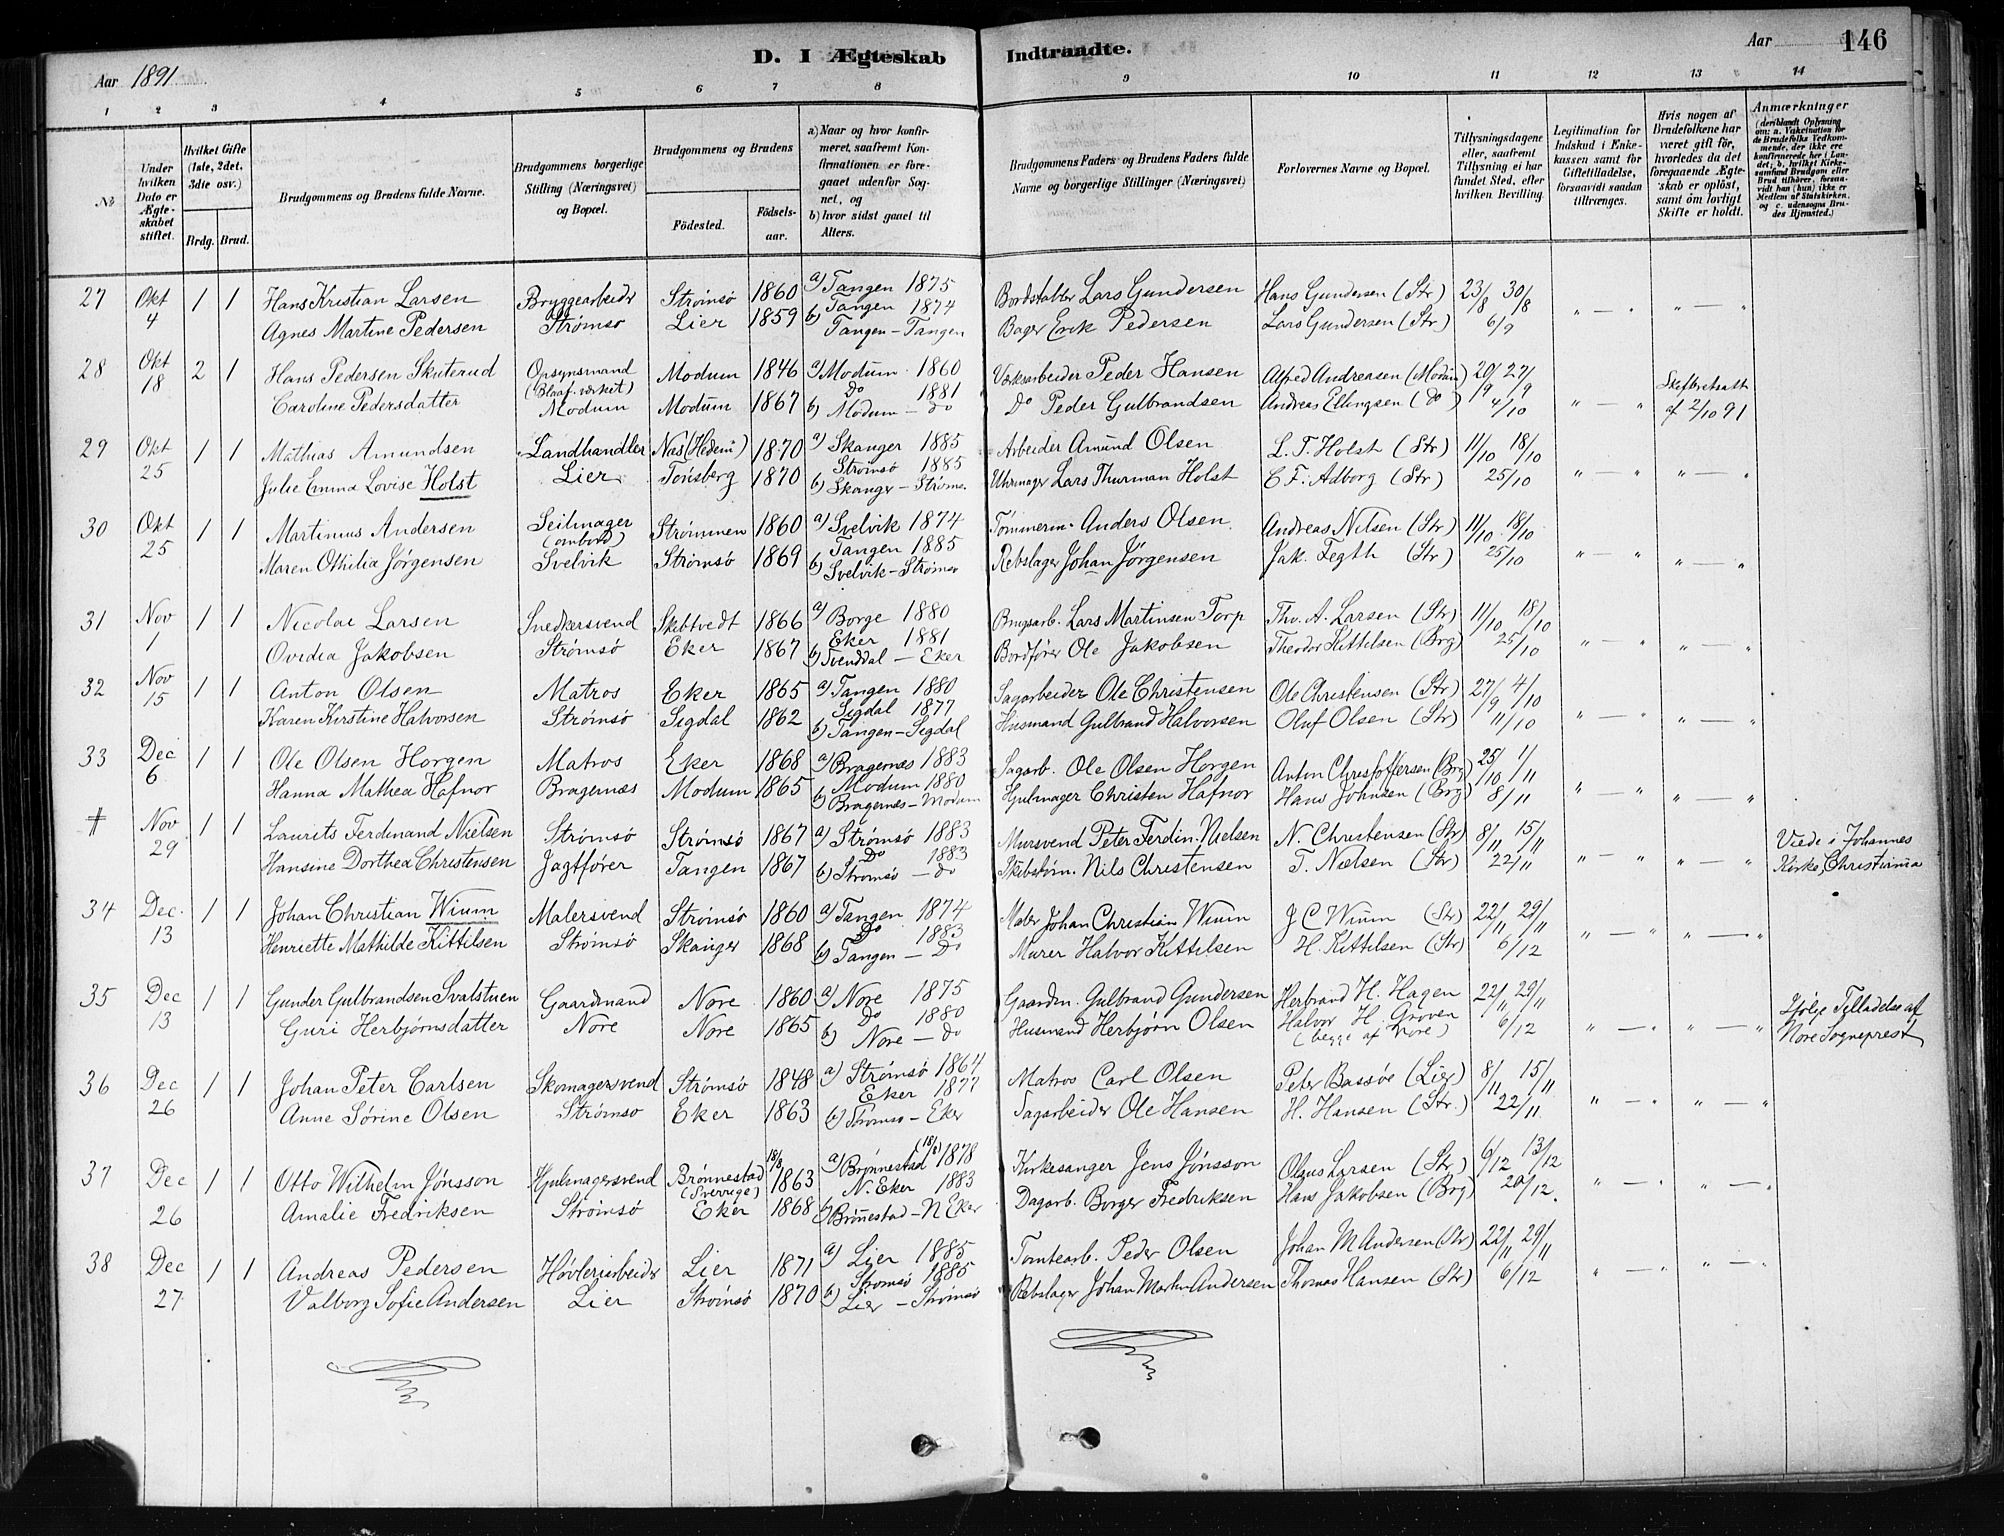 D. I Ægteskab Indtraadte.
Aar 1891
Aar
146
1 2 3 4 5 6 7 8 9 10 11 12 13 14
No
Under hvilken Dato er Ægteskabet stiftet.
Hvilket Gifte (1ste, 2det, 3die osv.)
Brdg. Brud.
Brudgommens og Brudens fulde Navne.
Brudgommens borgerlige Stilling (Næringsvei) og Bopæl.
Brudgommens og Brudens
Fødested.
Fødselsaar.
a) Naar og hvor konfirmeret, saafremt Konfirmationen er foregaaet udenfor Sognet, og
b) hvor sidst gaaet til Alters.
Brudgommens Faders og Brudens Faders fulde Navne og borgerlige Stillinger (Næringsvei)
Forlovernes Navne og Bopæl.
Tillysningsdagene eller, saafremt Tillysning ei har fundet Sted, efter hvilken Bevilling.
Legitimation for Indskud i Enkekassen samt for Giftetilladelse, forsaavidt saadan tiltrænges.
Hvis nogen af Brudefolkene har været gift før, hvorledes da det foregaaende Ægteskab er opløst, samt om lovligt Skifte er holdt.
Anmærkninger (deriblandt Oplysning om: a. Vakcination for de Brudefolks Vedkommende, der ikke ere konfirmerede her i Landet; b. hvilket Kirkesamfund Brudgom eller Brud tilhører, forsaavidt han (hun) ikke er Medlem af Statskirken, og c. udensogns Brudes Hjemsted.)
27 Okt 1 1 Hans Kristian Larsen Bryggearbeidr Strømsø 1860 a) Tangen 1875 Bordstabler Lars Gundersen Hans Gundersen (Str) 23/8 30/8 " — " " — "
4 Agnes Martine Pedersen Strømsø Lier 1859 Tangen 1874 b) Tangen - Tangen Bager Erik Pedersen Lars Gundersen (Str) 6/9
28 Okt 2 1 Hans Pedersen Skuterud Opsynsmand (Blaaf. værket) Modum 1846 a) Modum 1860 Værksarbeider Peder Hansen Alfred Andreasen (Modum) 20/9 27/9 " — "
18 Caroline Pedersdatter Modum Modum 1867 Do 1881 b) Modum - do Do Peder Gulbrandsen Andreas Ellingsen (do) 4/10 Skifteretsatt af 2/10 91
29 Okt 1 1 Mathias Amundsen Landhandler Næs (Hedem) 1870 a) Skanger 1885 Arbeider Amund Olsen L. T. Holst (Str) 11/10 18/10 " — " " — "
25 Julie Emma Lovise Holst Lier Tønsberg 1870 Strømsø 1885 b) Skanger - Strømsø Uhrmager Lars Thurman Holst C. F. Adborg (Str) 25/10
30 Okt 1 1 Martinius Andersen Seilmager (ombord) Strømmen 1860 a) Svelvik 1874 Tømmerm. Anders Olsen Andreas Nilsen (Str) 11/10 18/10 " — " " — "
25 Maren Othilia Jørgensen Svelvik Strømsø 1869 Tangen 1885 b) Svelvik - Strømsø Rebslager Johan Jørgensen Jak. Fegth (Str) 25/10
31 Nov 1 1 Nicolai Larsen Snedkersvend Skibtvedt 1866 a) Borge 1880 Brugsarb. Lars Martinsen Torp Thv. A. Larsen (Str) 11/10 18/10 " — " " — "
1 Ovidia Jakobsen Strømsø Eker 1867 Eker 1881 b) Svenddal - Eker Bordfører Ole Jakobsen Theodor Kittilsen (Brg) 25/10
32 Nov 1 1 Anton Olsen Matros Eker 1865 a) Tangen 1880 Sagarbeider Ole Christensen Ole Christensen (Str) 27/9 4/10 " — " " — "
15 Karen Kirstine Halvorsen Strømsø Sigdal 1862 Sigdal 1877 b) Tangen - Sigdal Husmand Gulbrand Halvorsen Oluf Olsen (Str) 11/10
33 Dec 1 1 Ole Olsen Horgen Matros Eker 1868 a) Bragernæs 1883 Sagarb. Ole Olsen Horgen Anton Christoffersen (Brg) 25/10 1/11 " — " " — "
6 Hanna Mathea Hafnor Bragernæs Modum 1865 Modum 1880 b) Bragernæs - Modum Hjulmager Christen Hafnor Hans Johnsen (Brg) 8/11
# Nov 1 1 Laurits Ferdinand Nielsen Strømsø Strømsø 1867 a) Strømsø 1883 Mursvend Peter Ferdin. Nielsen N. Christensen (Str) 8/11 15/11 " — " " — " Viede i Johannes
29 Hansine Dorthea Christensen Jagtfører Tangen 1867 Do 1883 b) Strømsø - do Skibstøm. Nils Christensen T. Nielsen (Str) 22/11 Kirke, Christiania
34 Dec. 1 1 Johan Christian Wium Malersvend Strømsø 1860 a) Tangen 1874 Maler Johan Christian Wium J C Wium (Str) 22/11 29/11 " — " " — "
13 Henriette Mathilde Kittilsen Strømsø Skanger 1868 Do 1883 b) Tangen - Do Murer Halvor Kittilsen H. Kittilsen (Str) 6/12
35 Dec 1 1 Gunder Gulbrandsen Svalstuen Gaardmand Nore 1860 a) Nore 1875 Gaardm. Gulbrand Gundersen Herbrand H. Hagen 22/11 29/11 " — " " — " Ifølge Tilladelse af
13 Guri Herbjørnsdatter Nore Nore 1865 Do 1880 b) Nore - do Husmand Herbjørn Olsen Halvor H. Groven (begge af Nore) 6/12 Nore Sogneprest
36 Dec 1 1 Johan Peter Carlsen Skomagersvend Strømsø 1848 a) Strømsø 1864 Matros Carl Olsen Peter Bassøe (Lier) 8/11 15/11 " — " " — "
26 Anne Sørine Olsen Strømsø Eker 1863 Eker 1877 b) Strømsø - Eker Sagarbeider Ole Hansen H. Hansen (Str.) 22/11
37 Dec 1 1 Otto Wilhelm Jónsson Hjulmagersvend Brønnestad (Sverrige) 18/3 1863 a) Brønnestad 1878 Kirkesanger Jens Jónsson Olaus Larsen (Str) 6/12 13/12 " — " " — "
26 Amalie Fredriksen Strømsø Eker 1868 N. Eker 1883 b) Brønnestad - N Eker Dagarb. Borger Fredriksen Hans Jakobsen (Brg) 20/12.
38 Dec 1 1 Andreas Pedersen Høvleriarbeidr Lier 1871 a) Lier 1885 Tomtearb. Peder Olsen Johan M Andersen (Str) 22/11 29/11 " — " " — "
27 Valborg Sofie Andersen Lier Strømsø 1870 Strømsø 1885 b) Lier - Strømsø Rebslager Johan Martin Andersen Thomas Hansen (Str) 6/12